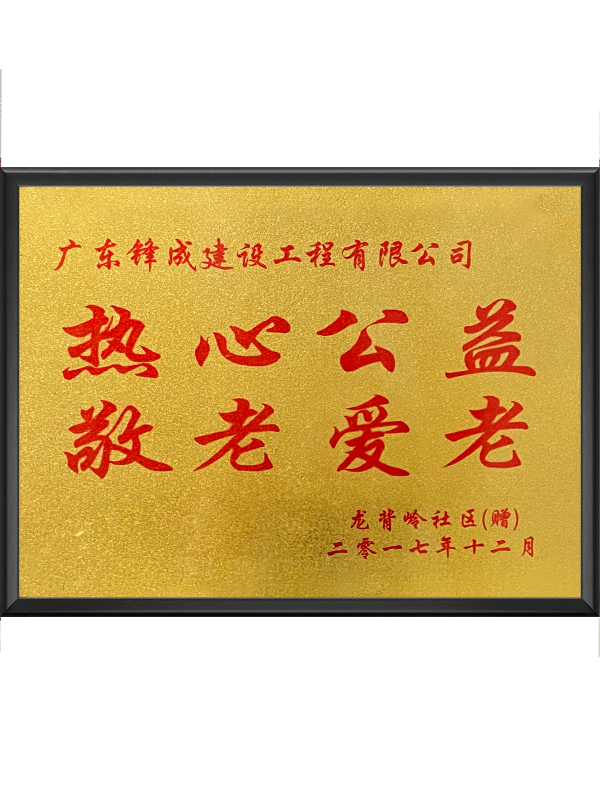 广东锋成建设工程有限公司
热心公益
敬老爱老
龙背岭社区(赠)
二零一七年十二月